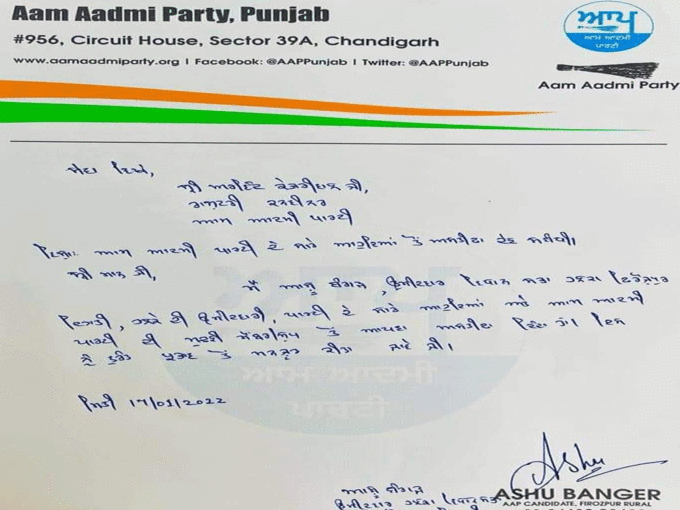 Aam Aadmi Party, Punjab
#956, Circuit House, Sector 39A, Chandigarh
www.aamaadmiparty.org | Facebook: @AAPPunjab | Twitter: @AAPPunjab
ਆਪ
ਆਮ ਆਦਮੀ
ਪਾਰਟੀ
Aam Aadmi Party
ਸੇਵਾ ਵਿਖੇ,
ਸ੍ਰੀ ਅਰਵਿੰਦ ਕੇਜਰੀਵਾਲ ਜੀ,
ਕਨਵੀਨਰ
ਆਮ ਆਦਮੀ ਪਾਰਟੀ
ਵਿਸ਼ਾ: ਆਮ ਆਦਮੀ ਪਾਰਟੀ ਦੇ ਸਾਰੇ ਅਹੁਦਿਆਂ ਤੋਂ ਅਸਤੀਫਾ ਦੇਣ ਸਬੰਧੀ।
ਸ੍ਰੀ ਮਾਨ ਜੀ,
ਮੈਂ ਆਸ਼ੂ ਬੰਗੜ, ਉਮੀਦਵਾਰ ਵਿਧਾਨ ਸਭਾ ਹਲਕਾ ਫਿਰੋਜ਼ਪੁਰ
ਦਿਹਾਤੀ, ਹਲਕੇ ਦੀ ਉਮੀਦਵਾਰੀ, ਪਾਰਟੀ ਦੇ ਸਾਰੇ ਅਹੁਦਿਆਂ ਅਤੇ ਆਮ ਆਦਮੀ
ਪਾਰਟੀ ਦੀ ਮੁਢਲੀ ਮੈਂਬਰਸ਼ਿਪ ਤੋਂ ਆਪਣਾ ਅਸਤੀਫਾ ਦਿੰਦਾ ਹਾਂ। ਇਸ
ਨੂੰ ਤੁਰੰਤ ਪ੍ਰਭਾਵ ਤੋਂ ਮਨਜ਼ੂਰ ਕੀਤਾ ਜਾਵੇ ਜੀ।
ਆਪ
ਆਮ ਆਦਮੀ
ਪਾਰਟੀ
ਮਿਤੀ 17/01/2022
Ashu
ਆਸ਼ੂ ਬੰਗੜ
ਉਮੀਦਵਾਰ ਹਲਕਾ
ASHU BANGER
AAP CANDIDATE, FIROZPUR RURAL